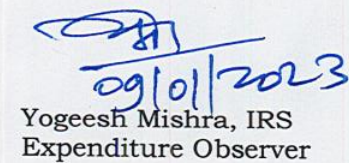 09/01/2023
Yogeesh Mishra, IRS
Expenditure Observer